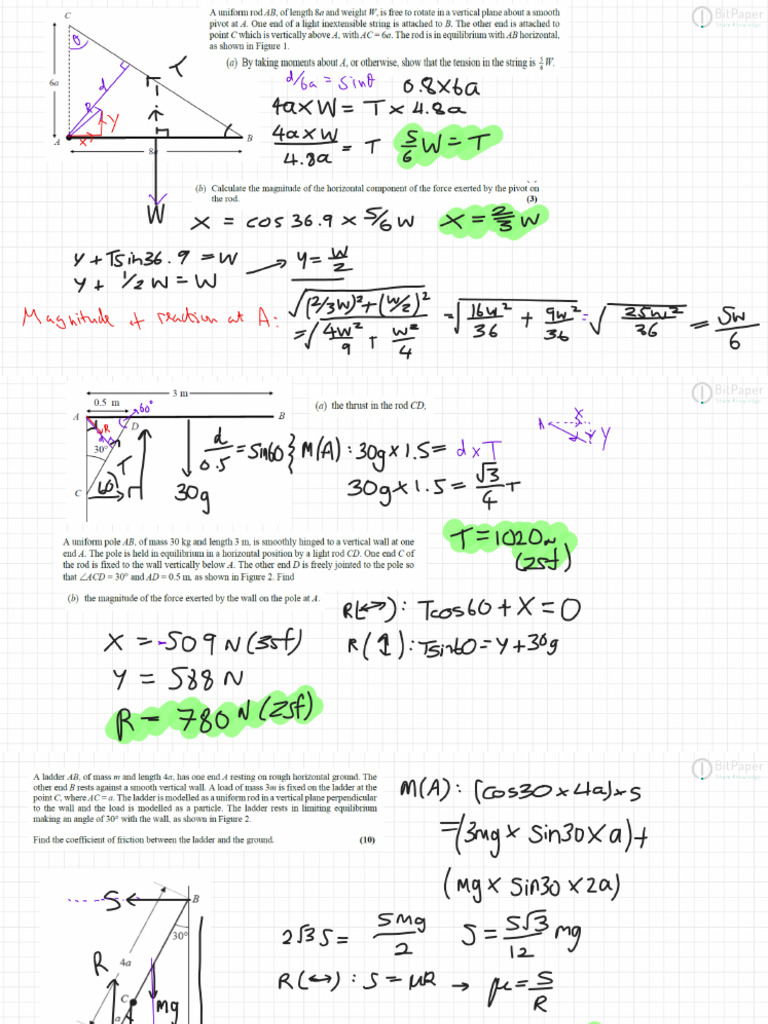 BitPaper
A uniform rod AB, of length 8a and weight W, is free to rotate in a vertical plane about a smooth
pivot at A. One end of a light inextensible string is attached to B. The other end is attached to
point C which is vertically above A, with AC = 6a. The rod is in equilibrium with AB horizontal,
as shown in Figure 1.
(a) By taking moments about A, or otherwise, show that the tension in the string is 5/6 W.
C
θ
d
6a
R
Y
X
A
B
8a
W
d/6a = sinθ
0.8×6a
4a×W = T × 4.8a
4a×W/4.8a = T
5/6 W = T
(b) Calculate the magnitude of the horizontal component of the force exerted by the pivot on
the rod.
(3)
X = cos 36.9 × 5/6 W
X = 2/3 W
Y + Tsin36.9 = W
Y + 1/2 W = W
Y = W/2
Magnitude of reaction at A:
√(2/3W)²+(W/2)²
= √4W²/9 + W²/4
= √16W²/36 + 9W²/36 = √25W²/36 = 5W/6
BitPaper
3 m
0.5 m
60°
A
D
B
R
d
30°
T
C
60
30g
(a) the thrust in the rod CD,
d/0.5 = sin60 } M(A): 30g×1.5 = d×T
30g×1.5 = √3/4 T
A
X
Y
T=1020N
(2sf)
A uniform pole AB, of mass 30 kg and length 3 m, is smoothly hinged to a vertical wall at one
end A. The pole is held in equilibrium in a horizontal position by a light rod CD. One end C of
the rod is fixed to the wall vertically below A. The other end D is freely jointed to the pole so
that ∠ACD = 30° and AD = 0.5 m, as shown in Figure 2. Find
(b) the magnitude of the force exerted by the wall on the pole at A.
R(↔): Tcos60 + X = 0
R(↕): Tsin60 = Y + 30g
X = -509N (3sf)
Y = 588N
R = 780N (2sf)
BitPaper
A ladder AB, of mass m and length 4a, has one end A resting on rough horizontal ground. The
other end B rests against a smooth vertical wall. A load of mass 3m is fixed on the ladder at the
point C, where AC = a. The ladder is modelled as a uniform rod in a vertical plane perpendicular
to the wall and the load is modelled as a particle. The ladder rests in limiting equilibrium
making an angle of 30° with the wall, as shown in Figure 2.
Find the coefficient of friction between the ladder and the ground.
(10)
M(A): (cos30×4a)×S
=(3mg × sin30×a)+
(mg × sin30 × 2a)
2√3S = 5mg/2
S = 5√3/12 mg
R(↔): S = μR → μ = S/R
S
B
30°
R
4a
C
a
mg